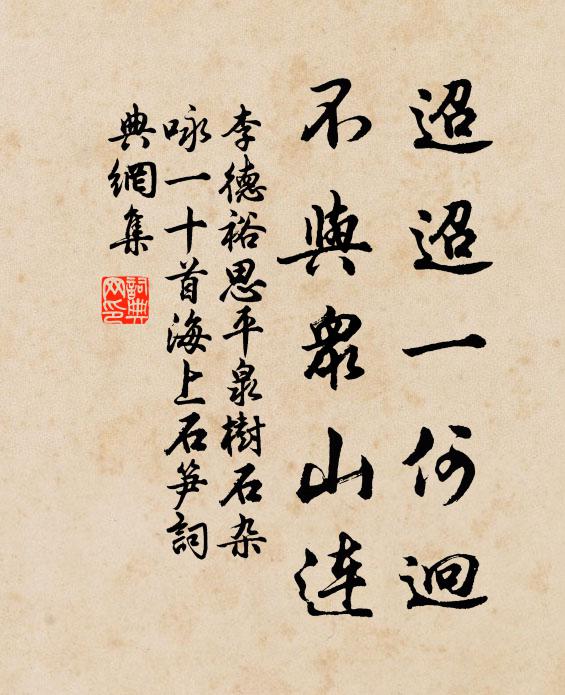 迢迢一何迥
不與眾山連
李德裕思平泉樹石杂
咏一十首海上石笋詞
典網集
詞典
网印